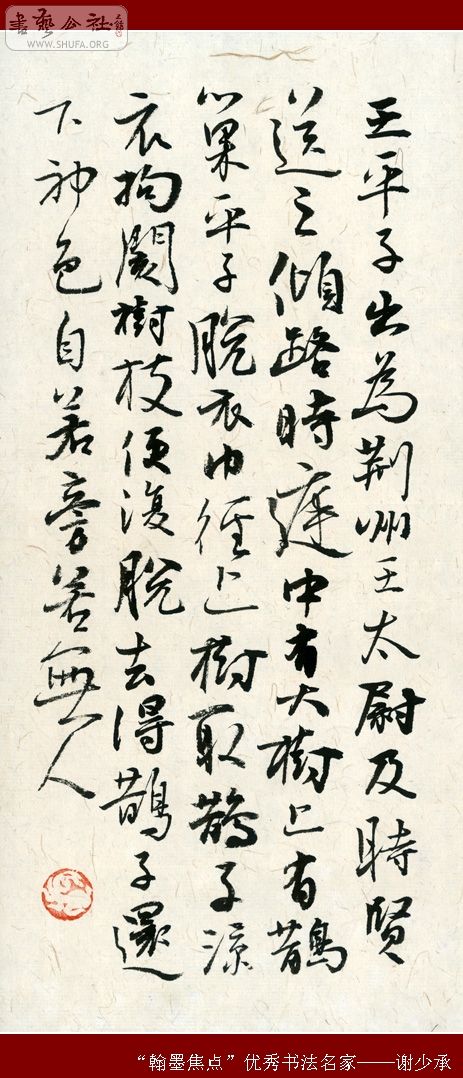 書藝公社
WWW.SHUFA.ORG
王平子出為荊州王太尉及時賢
送之傾路時庭中有大樹上有鵲
巢平子脫衣巾徑上樹取鵲子涼
衣拘閡樹枝便復脫去得鵲子還
下神色自若旁若無人
“翰墨焦点”优秀书法名家——谢少承